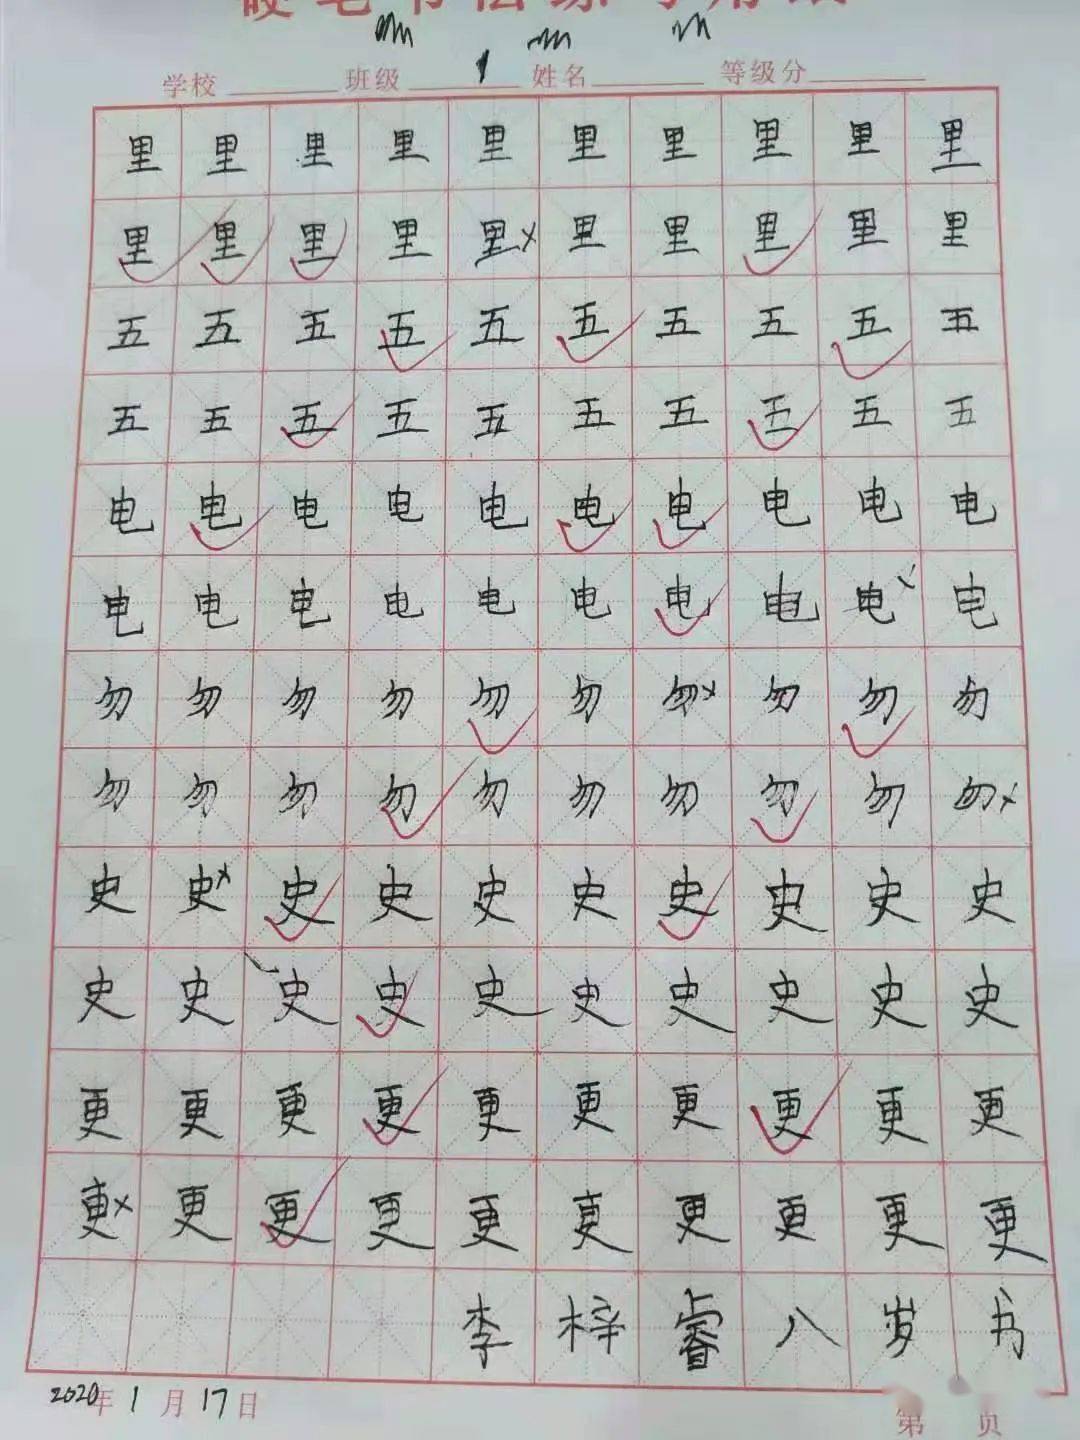 硬笔书法练习用纸
学校 班级 1 姓名 等级分
里里里里里里里里里里
里里里里里里里里里里
五五五五五五五五五五
五五五五五五五五五五
电电电电电电电电电电
电电电电电电电电电电
勿勿勿勿勿勿勿勿勿勿
勿勿勿勿勿勿勿勿勿勿
史史史史史史史史史史
史史史史史史史史史史
更更更更更更更更更更
更更更更更更更更更更
李梓睿八岁书
2020年1月17日 第 页